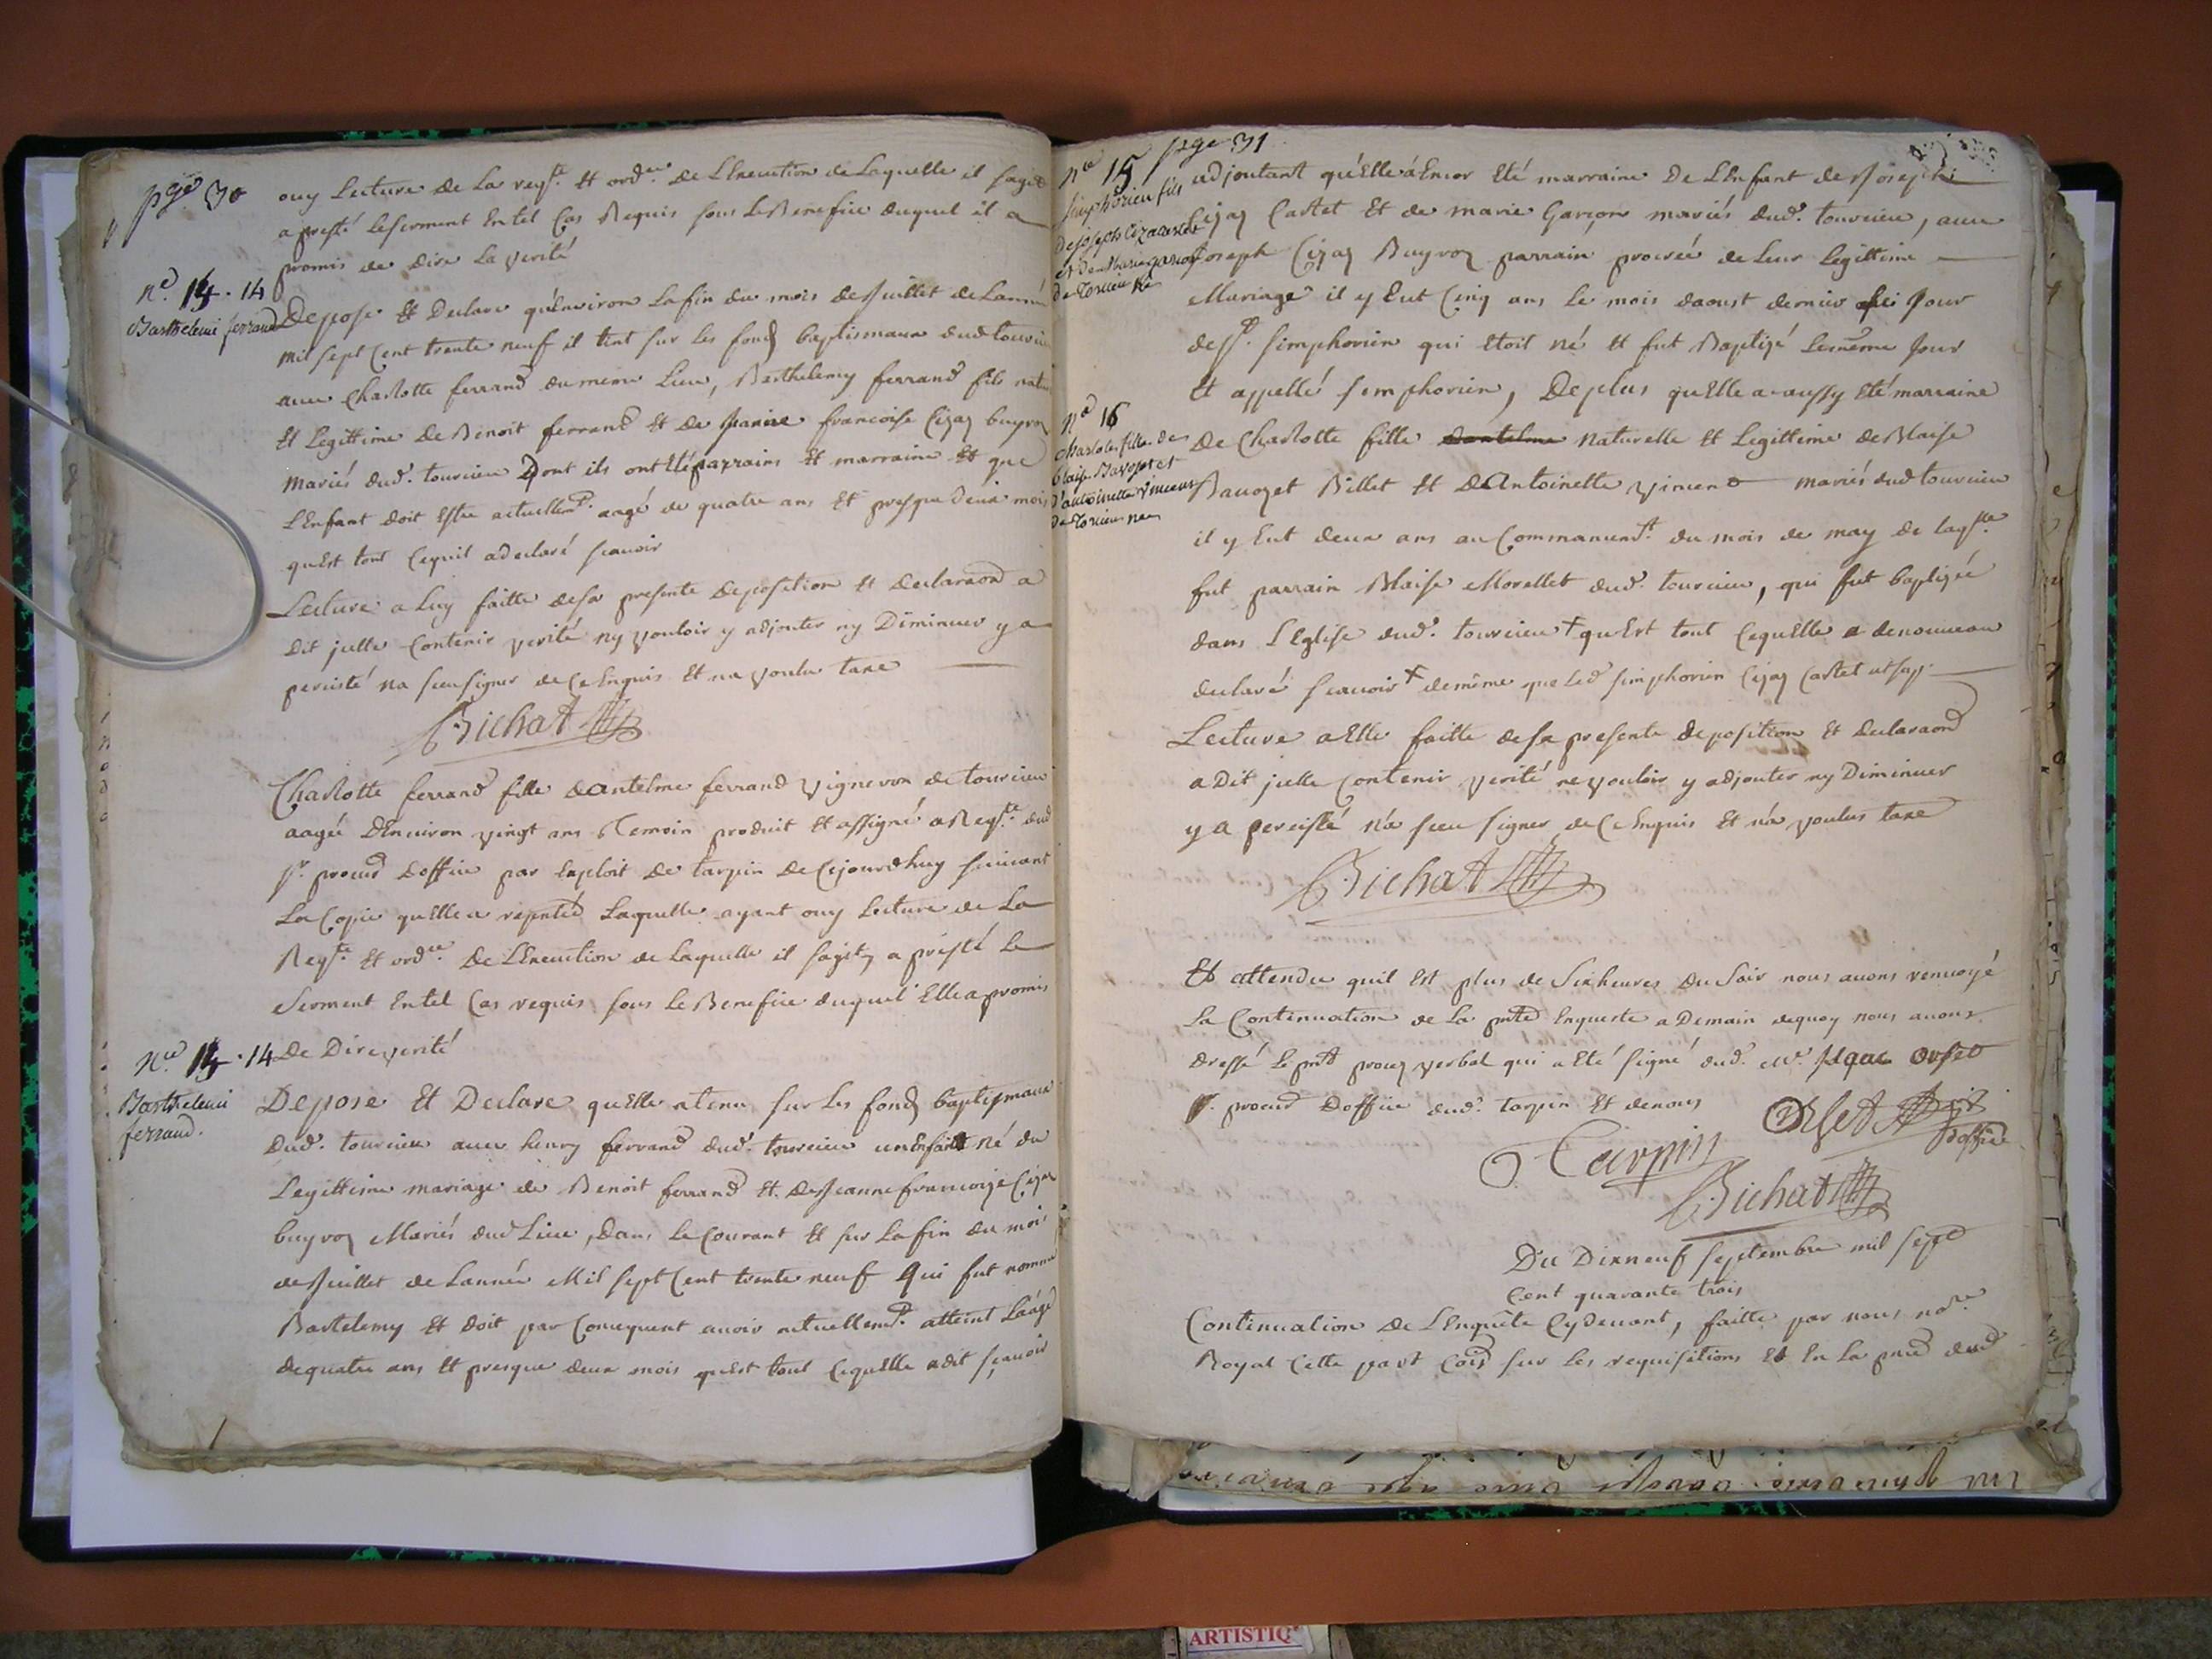 pge 30
ouy Lecture de La reqte. Et ordce. De LExecution de Laquelle il sagit
a presté Leserment Entel Cas Requis sous LeBenefice duquel il a
promis de dire La verité
No. 14
Barthelemi ferrand
Depose Et Declare qu'Environ Lafin du mois deJuillet deLannée
mil sept Cent trente neuf il tint sur Les fonds baptismaux dud tourcieu
avec Charlotte ferrand dumeme Lieu, Berthelemy ferrand fils natu
Et Legittime DeBenoit ferrand Et de Jeanne francoise Cizaz buyroz
mariés dud. tourcieu Dont ils ont Eté parrains Et marraine Et que
L'Enfant doit Estre actuellemt. aagé de quatre ans Et presque deux mois
quEst tout Cequil adeclaré scavoir
Lecture a Luy faitte desa presente Deposition Et declaraon a
Dit jcelle Contenir verité ny vouloir y adjouter ny Diminuer y a
percisté na sceu signer de Ce Enquis Et na voulu taxe
Bichat
Charlotte ferrand fille dantelme ferrand vigneron de tourcieu
aagée dEnviron vingt ans temoin produit Et assigné a Reqte. dud
sr. procurd Doffice par Exploit de tarpin de Cejourdhuy suivant
La Copie quElle a reptée Laquelle ayant ouy Lecture de La
Reqte Et ordce. De LExecution de Laquelle il sagit, a présté Le
serment Entel Cas requis sous Le Benefice duquel Elle a promis
De Dire verité
No. 14
Barthelemi
ferrand.
Depose Et Declare quElle atenu sur Les fonds baptismaux
Dud. tourcieu avec henry ferrand dud. tourcieu unEnfant Né du
Legittime mariage de Benoit ferrand Et. deJeanne francoize Cizaz
buyroz Mariés dud Lieu, Dans Le Courant Et sur Lafin du mois
deJuillet de Lannée Mil sept Cent trente neuf Qui fut nommé
Bartelemy Et doit par Consequent avoir actuellemt. atteint Laage
dequatre ans Et presque deux mois quEst tout CequElle adit scavoir
pge 31
No 15
simphorien fils
dejoseph Cizacastet
et de Marie garçon
de torcieu
adjoutant qu'Elle a Encor Eté marraine De LEnfant deJoseph
Cizaz Castet Et de marie Garçon mariés dud. tourcieu, avec
Joseph Cizaz Buyroz parrain procréé de Leur Legittime
Mariage il y Eut Cinq ans Le mois daoust dernier Jour
dest. simphorien qui Etoit né Et fut Baptizé Lemême Jour
Et appellé simphorien, Deplus quElle a aussy Eté marraine
No 16
Charlote, fille de
blaise Bavozet et
d'antoinette vincent
de torcieu
De Charlotte fille dantelme Naturelle Et Legittime deBlaise
Bavozet Billet Et dAntoinette vincent mariés dud tourcieu
il y Eut deux ans au Commancemt. du mois de may de laqlle.
fut parrain Blaise Morellet dud. tourcieu, qui fut baptizée
dans LEglise dud. tourcieu + quEst tout CequElle a denouveau
declaré scavoir + demême que Led simphorien Cizaz Castet utsup.
Lecture aElle faitte desa presente deposition Et declaraon
a Dit jcelle Contenir verité ne vouloir y adjouter ny Diminuer
y a percisté n'a sceu signer de Ce Enquis Et n'a voulus taxe
Bichat
Et attendu quil Est plus de Sixheures du Soir nous avons renvoyé
La Continuation de La pnte Enqueste a Demain dequoy nous avons
dressé Le pnt procez verbal qui a Eté signé dud. Mr. Orset
sr. procurd Doffice dud. tarpin Et denous
Tarpin
Orset
doffice
Bichat
Du Dixneuf septembre mil sept
Cent quarante trois
Continuation de LEnquête Cydevant, faitte par nous nore.
Royal Cette part Cois sur Les requisitions Et En La pnce dud
ARTISTIQ